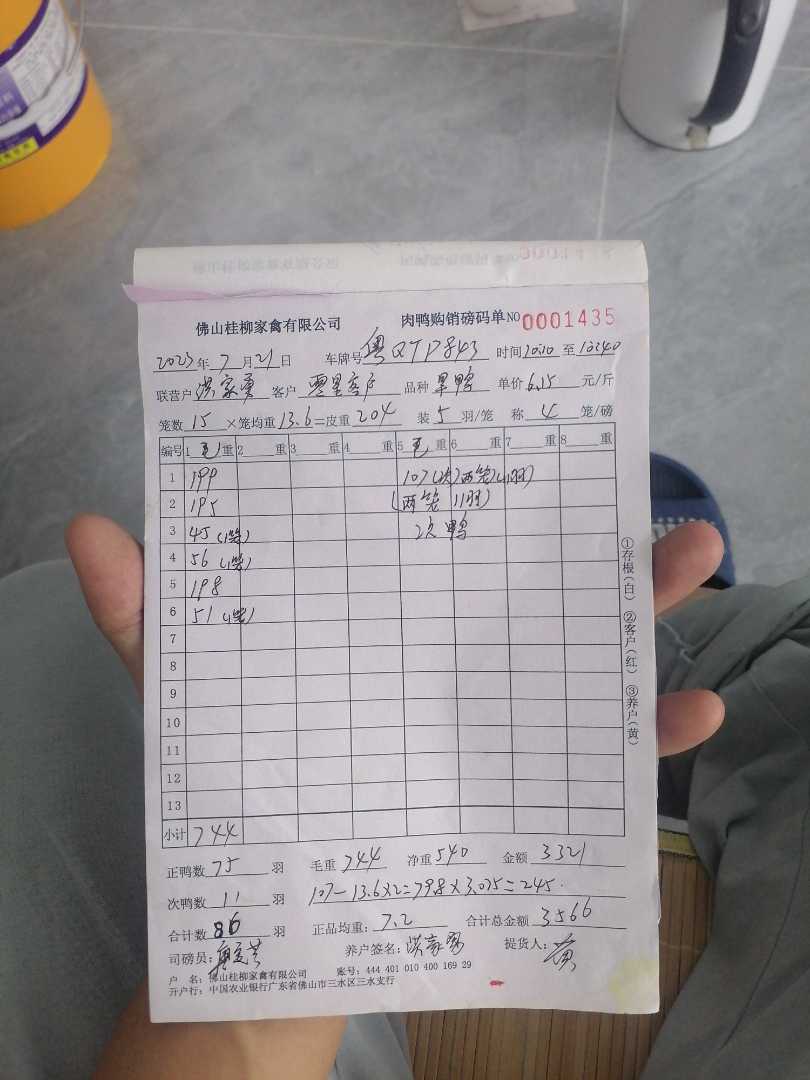 佛山桂柳家禽有限公司 肉鸭购销磅码单 NO 0001435
2023年7月21日 车牌号 粤QTP843 时间 10:10 至 10:40
联营户 洪家勇 客户 零星客户 品种 单价 6.15 元/斤
笼数 15 ×笼均重 13.6 =皮重 204 装 5 羽/笼 称 4 笼/磅
编号 1 毛 重 2 重 3 重 4 重 5 毛 重 6 重 7 重 8 重
1 199 107(次)两笼(11羽)
2 195 (两笼 11羽)
3 45(1笼) 次鸭
4 56(1笼)
5 198
6 51(1笼)
7
8
9
10
11
12
13
小计 744
①存根(白) ②客户(红) ③养户(黄)
正鸭数 75 羽 毛重 744 净重 540 金额 3321
次鸭数 11 羽 107-13.6×2=79.8×3.075=245.
合计数 86 羽 正品均重: 7.2 合计总金额 3566
司磅员: 养户签名: 洪家勇 提货人:
户 名: 佛山桂柳家禽有限公司 账号: 444 401 010 400 169 29
开户行: 中国农业银行广东省佛山市三水区三水支行